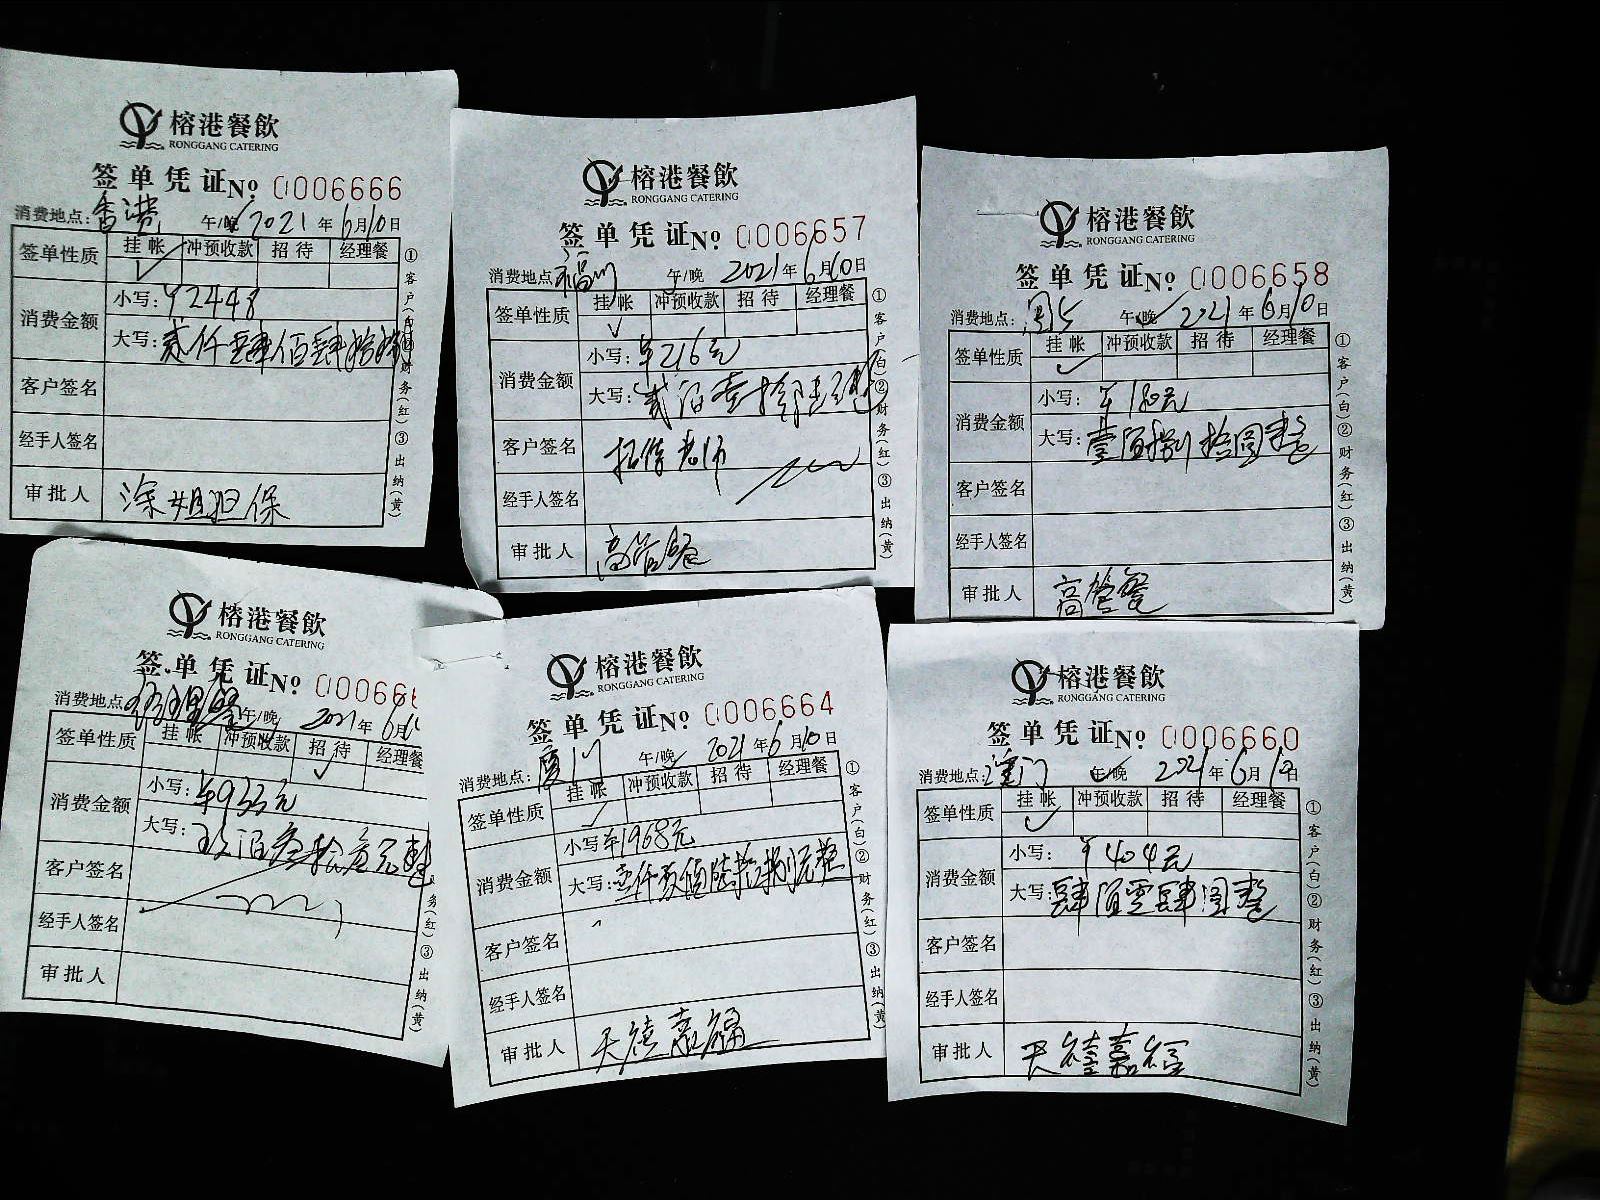 榕港餐飲
RONGGANG CATERING
签单凭证 № 0006666
消费地点: 香港 午/晚 2021年6月10日
签单性质 挂帐 冲预收款 招待 经理餐
消费金额 小写: ¥2448
大写: 贰仟肆佰肆拾捌
客户签名
经手人签名
审批人 涂姐担保
①客户(白)②财务(红)③出纳(黄)
榕港餐飲
RONGGANG CATERING
签单凭证 № 0006657
消费地点: 福州 午/晚 2021年6月10日
签单性质 挂帐 冲预收款 招待 经理餐
消费金额 小写: ¥216元
大写: 贰佰壹拾陆元整
客户签名 老师
经手人签名
审批人 高管餐
①客户(白)②财务(红)③出纳(黄)
榕港餐飲
RONGGANG CATERING
签单凭证 № 0006658
消费地点: 午/晚 2021年6月10日
签单性质 挂帐 冲预收款 招待 经理餐
消费金额 小写: ¥180元
大写: 壹佰捌拾圆整
客户签名
经手人签名
审批人 高管餐
①客户(白)②财务(红)③出纳(黄)
榕港餐飲
RONGGANG CATERING
签单凭证 № 000666
消费地点: 经理餐 午/晚 2021年6月1
签单性质 挂帐 冲预收款 招待 经理餐
消费金额 小写: ¥933元
大写: 玖佰叁拾叁元整
客户签名
经手人签名
审批人
务(红)③出纳(黄)
榕港餐飲
RONGGANG CATERING
签单凭证 № 0006664
消费地点: 厦门 午/晚 2021年6月10日
签单性质 挂帐 冲预收款 招待 经理餐
消费金额 小写: ¥1968元
大写: 壹仟玖佰陆拾捌元整
客户签名
经手人签名
审批人 天禧嘉福
①客户(白)②财务(红)③出纳(黄)
榕港餐飲
RONGGANG CATERING
签单凭证 № 0006660
消费地点: 厦门 午/晚 2021年6月10日
签单性质 挂帐 冲预收款 招待 经理餐
消费金额 小写: ¥404元
大写: 肆佰零肆圆整
客户签名
经手人签名
审批人 天禧嘉福
①客户(白)②财务(红)③出纳(黄)